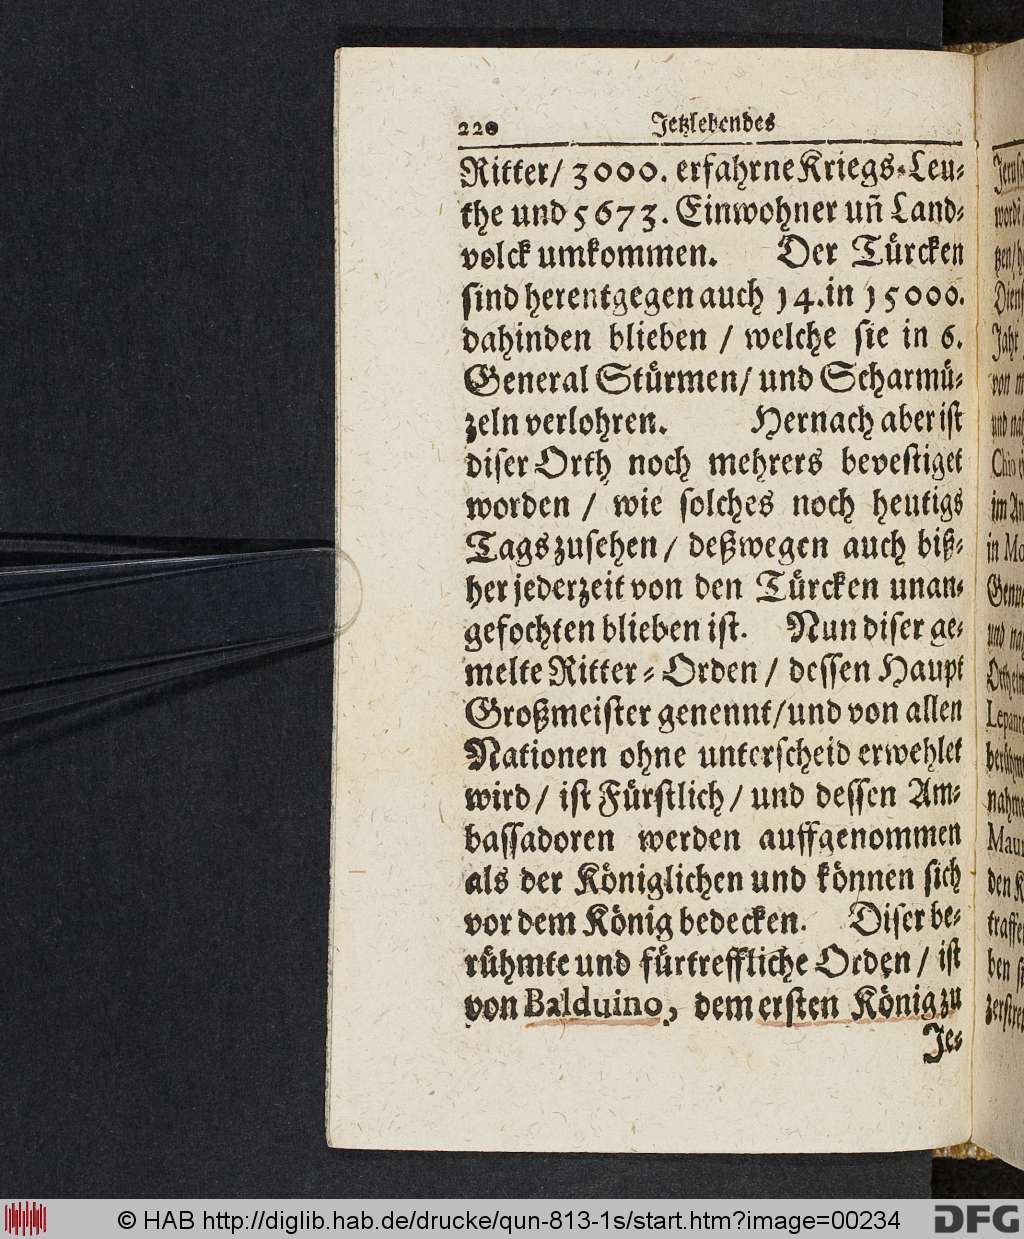 220 Jetzlebendes
Ritter/ 3000. erfahrne Kriegs-Leu-
the und 5673. Einwohner un̄ Land-
volck umkommen. Der Türcken
sind herentgegen auch 14. in 15000.
dahinden blieben / welche sie in 6.
General Stürmen/ und Scharmü-
zeln verlohren. Hernach aber ist
diser Orth noch mehrers bevestiget
worden / wie solches noch heutigs
Tags zusehen/ deßwegen auch biß-
her jederzeit von den Türcken unan-
gefochten blieben ist. Nun diser ge-
melte Ritter-Orden / dessen Haupt
Großmeister genennt/ und von allen
Nationen ohne unterscheid erwehlet
wird / ist Fürstlich / und dessen Am-
bassadoren werden auffgenommen
als der Königlichen und können sich
vor dem König bedecken. Diser be-
rühmte und fürtreffliche Orden / ist
von Balduino, dem ersten König zu
Je-
© HAB http://diglib.hab.de/drucke/qun-813-1s/start.htm?image=00234
DFG